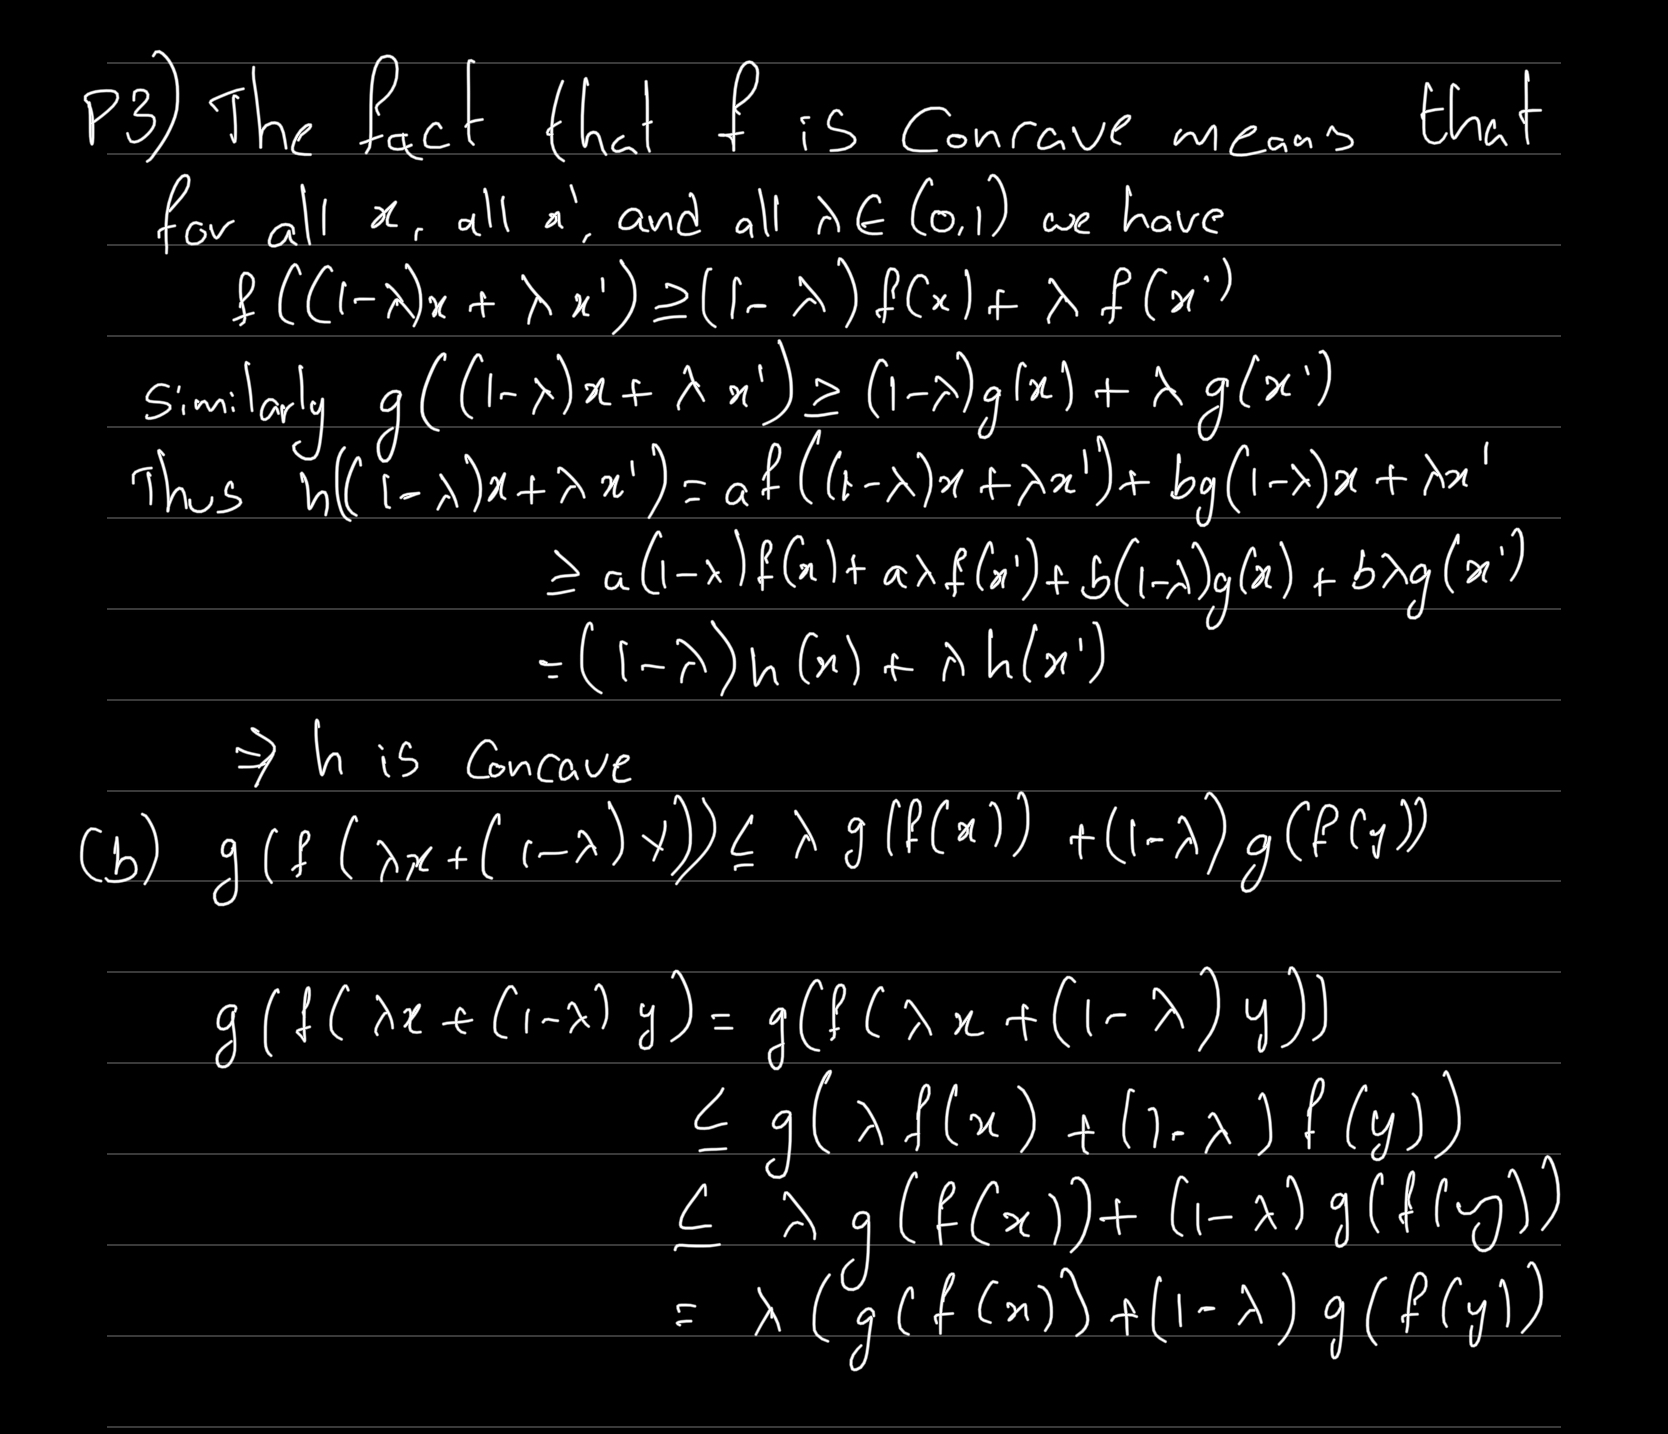 P3) The fact that f is Concave means that
for all x, all x', and all λ∈(0,1) we have
f((1-λ)x + λx') ≥ (1-λ)f(x) + λ f(x')
Similarly g((1-λ)x + λ x') ≥ (1-λ)g(x) + λ g(x')
Thus h((1-λ)x + λx') = af((1-λ)x + λx') + bg(1-λ)x + λx'
≥ a(1-λ)f(x) + aλf(x') + b(1-λ)g(x) + bλg(x')
= (1-λ)h(x) + λh(x')
⇒ h is Concave
(b) g(f(λx+(1-λ)y)) ≤ λ g(f(x)) + (1-λ)g(f(y))
g(f(λx + (1-λ)y) = g(f(λx + (1-λ)y))
≤ g(λf(x) + (1-λ)f(y))
≤ λ g(f(x)) + (1-λ)g(f(y))
= λ(g(f(x)) + (1-λ) g(f(y))